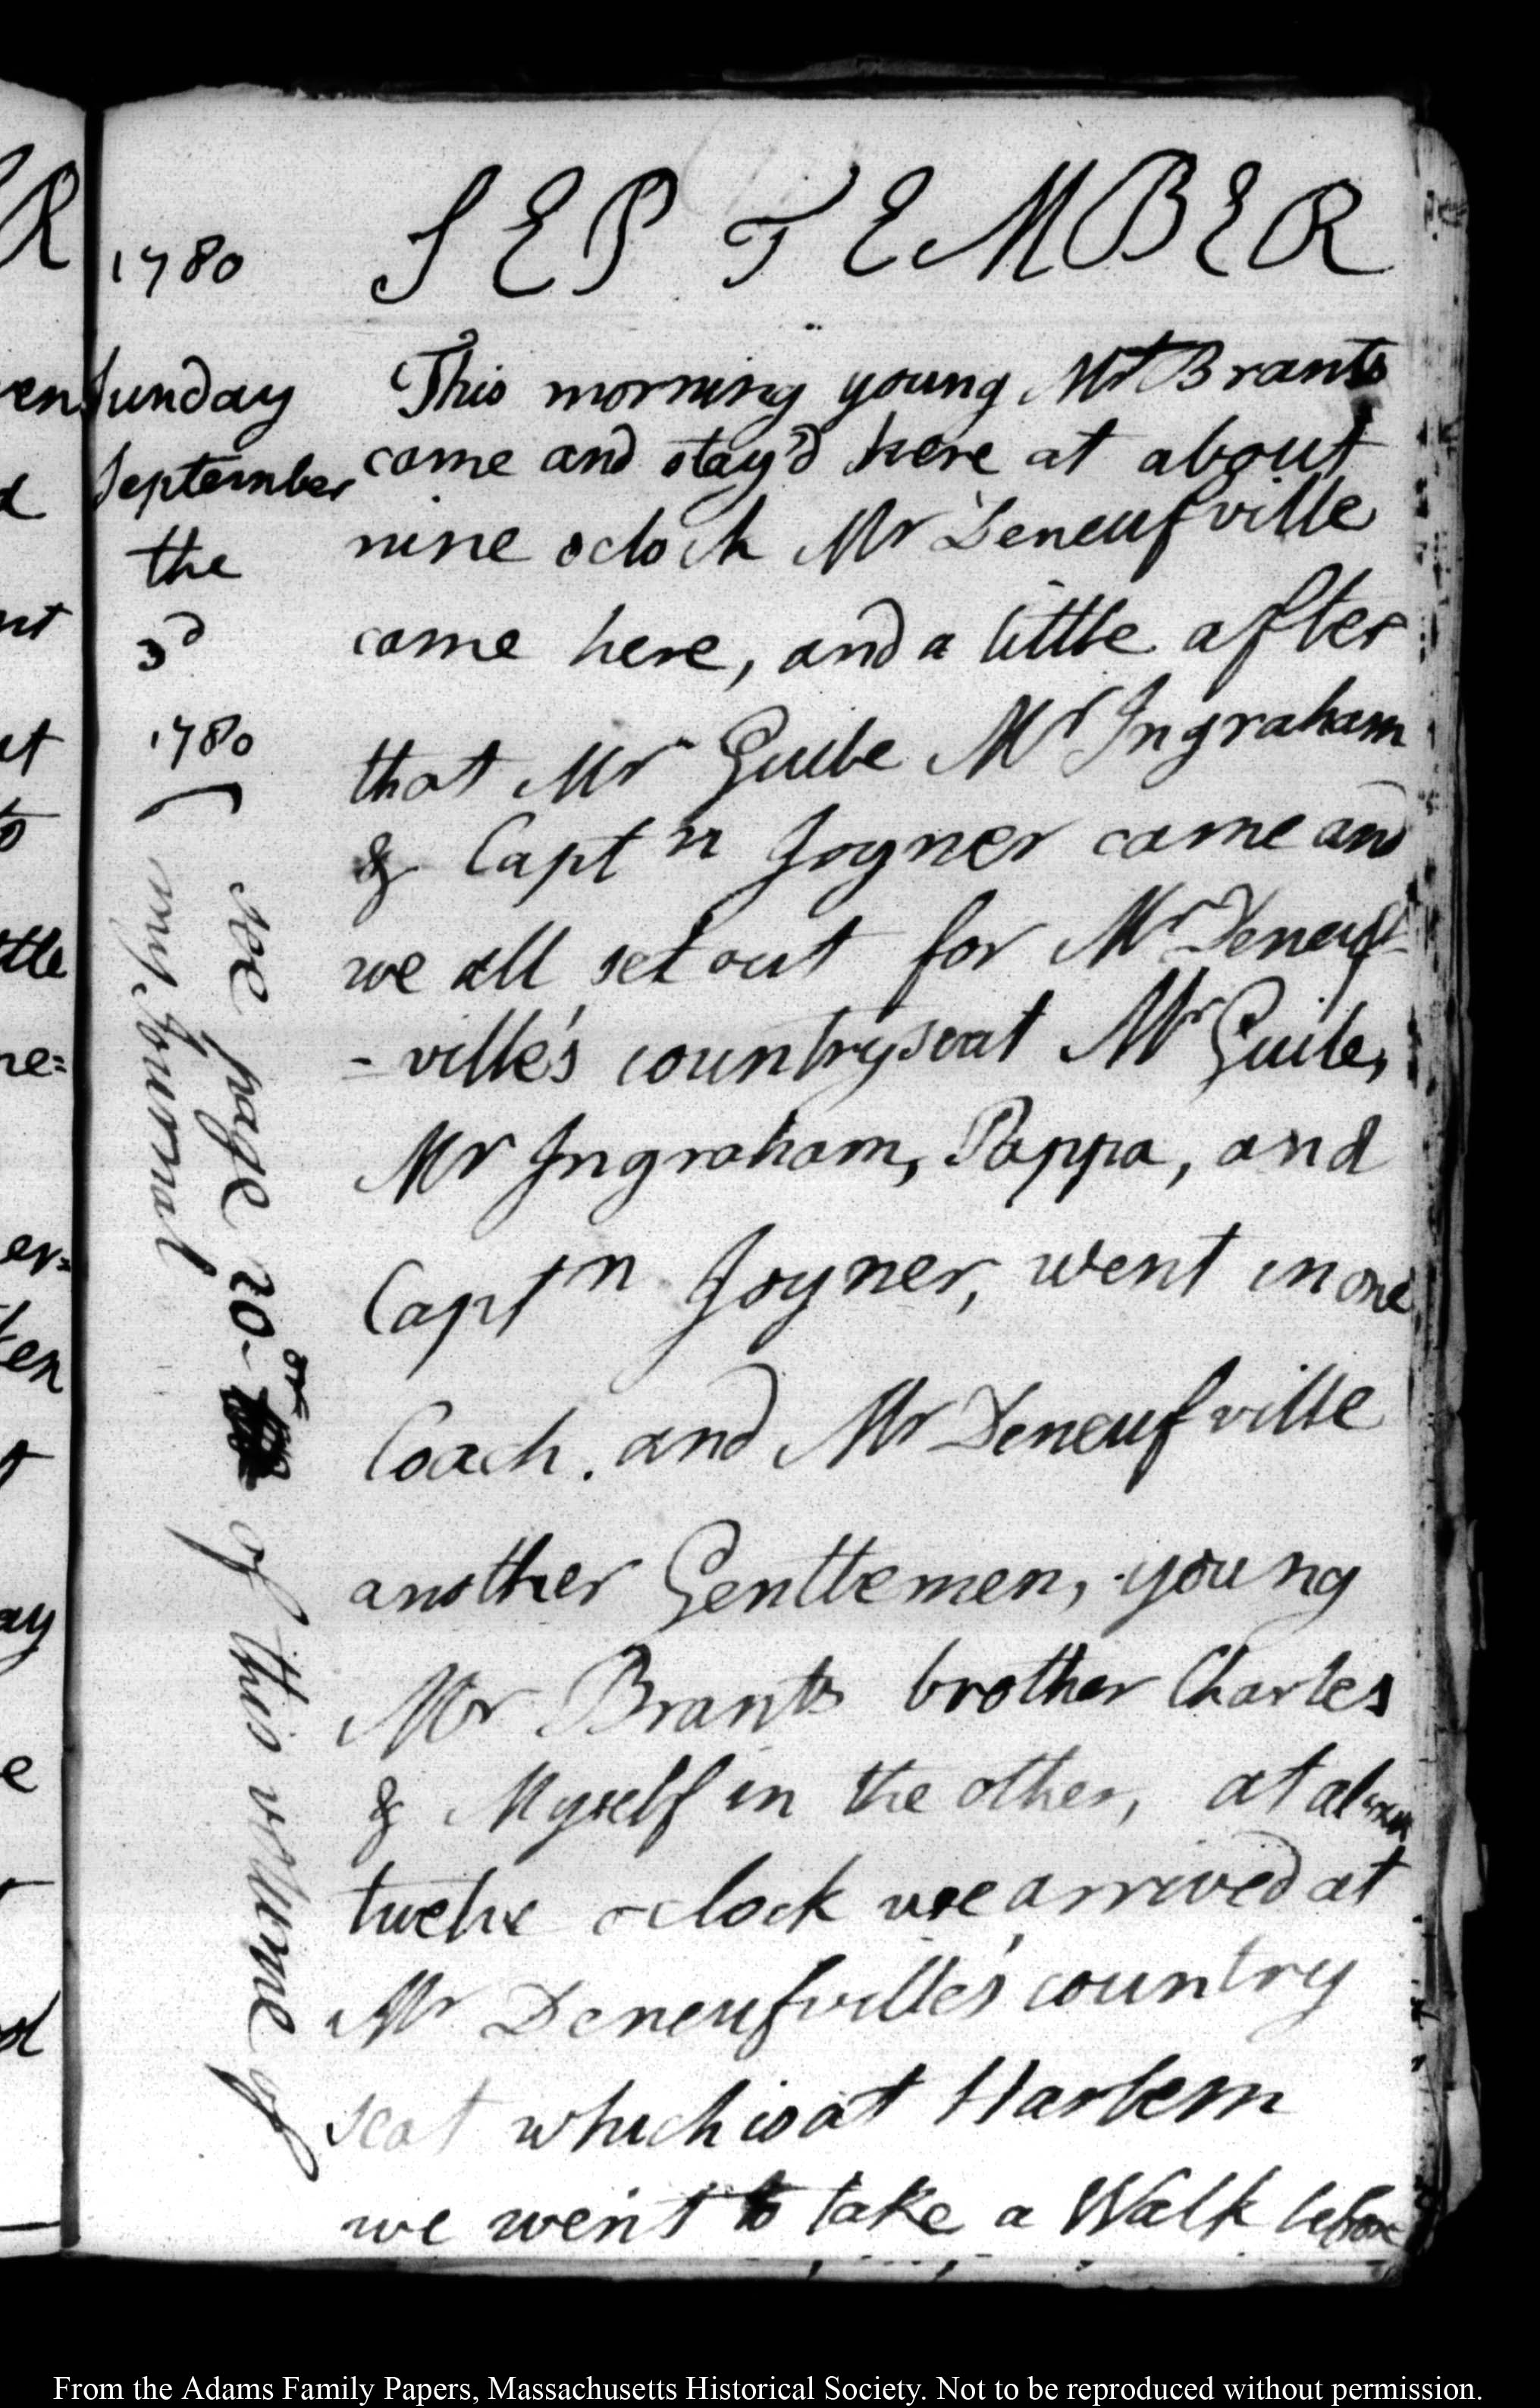 1780
SEPTEMBER
Sunday
September
the
3d
1780
This morning young Mr Brants
came and stay'd here at about
nine oclock Mr Deneufville
came here, and a little after
that Mr Guile Mr Ingraham
& Captn Joyner came and
we all set out for Mr Deneuf-
-ville's country seat Mr Guile,
Mr Ingraham, Pappa, and
Captn Joyner, went in one
Coach. and Mr Deneufville
another Gentlemen, young
Mr Brants brother Charles
& Myself in the other, at about
twelve oclock we arrived at
Mr Deneufville's country
seat which is at Harlem
we went to take a Walk before
see page 20 of this volume of
my Journal
From the Adams Family Papers, Massachusetts Historical Society. Not to be reproduced without permission.